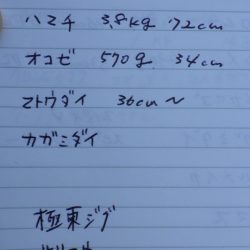 ハマチ 3.8kg 72cm
オコゼ 570g 34cm
マトウダイ 36cm〜
カガミダイ
極東ジグ